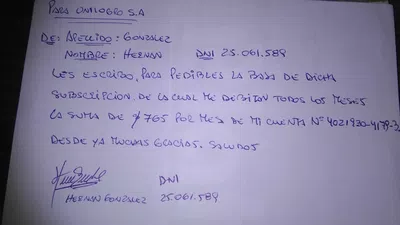 PARA ONILOGIO S.A
DE: APELLIDO: GONZALEZ
NOMBRE: HERNAN DNI 25.061.589
LES ESCRIBO, PARA PEDIRLES LA BAJA DE DICHA
SUBSCRIPCION DE LA CUAL ME DEBITAN TODOS LOS MESES
LA SUMA DE $765 POR MES DE MI CUENTA Nº 4021930-4179-3
DESDE YA MUCHAS GRACIAS. SALUDOS
DNI
HERNAN GONZALEZ 25.061.589